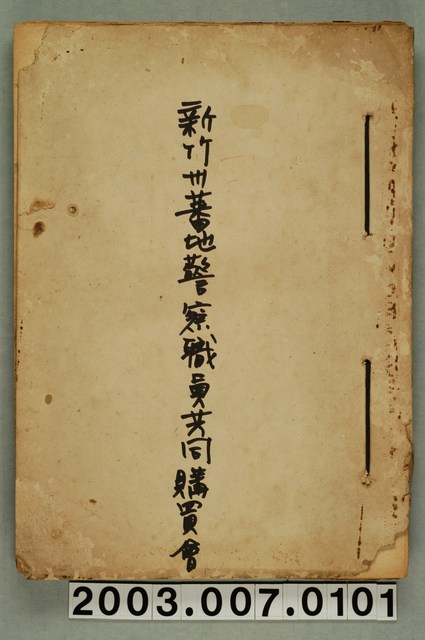 新竹州蕃地警察職員共同購買會
2003.007.0101